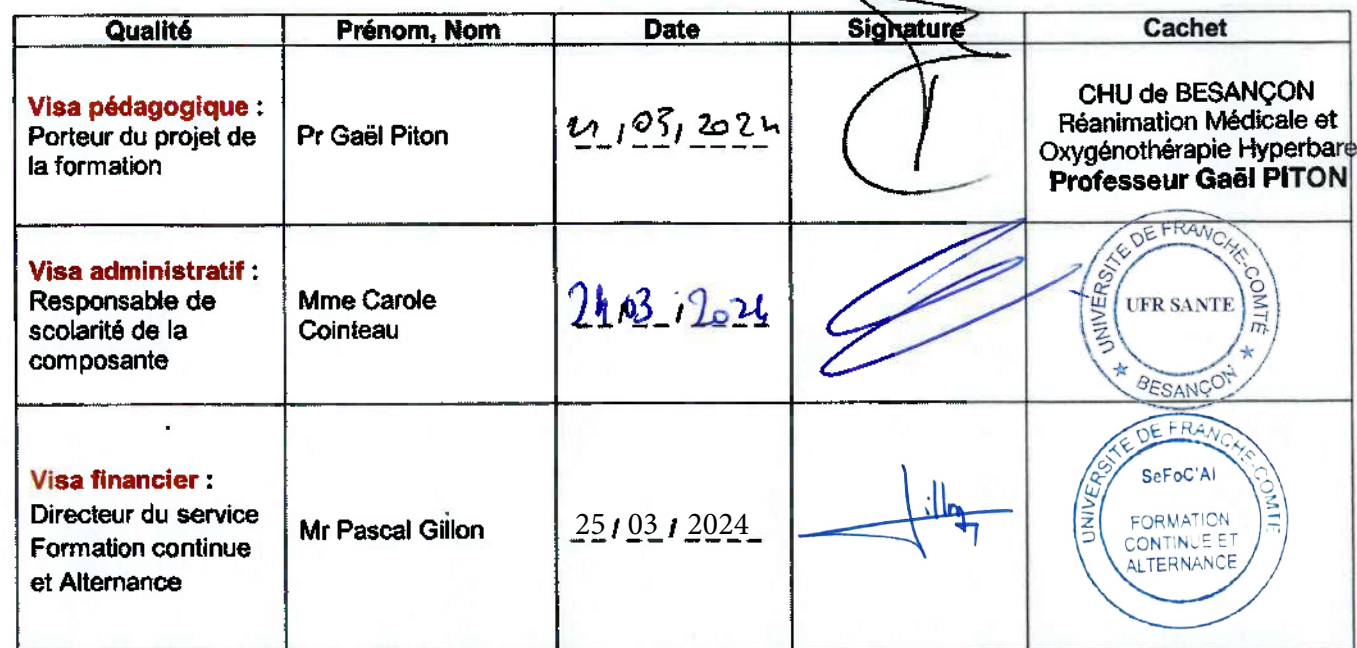 Qualité Prénom, Nom Date Signature Cachet
Visa pédagogique :
Porteur du projet de
la formation
Pr Gaël Piton
21/03/2024
CHU de BESANÇON
Réanimation Médicale et
Oxygénothérapie Hyperbare
Professeur Gaël PITON
Visa administratif :
Responsable de
scolarité de la
composante
Mme Carole
Cointeau
24/03/2024
UNIVERSITE DE FRANCHE-COMTÉ
UFR SANTE
BESANÇON
Visa financier :
Directeur du service
Formation continue
et Alternance
Mr Pascal Gillon
25/03/2024
Gillon
UNIVERSITE DE FRANCHE-COMTE
SeFoC'Al
FORMATION
CONTINUE ET
ALTERNANCE